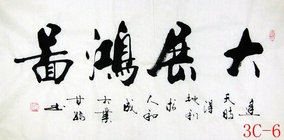 大展鴻圖
天時
地利
人和
成
大業
3C-6